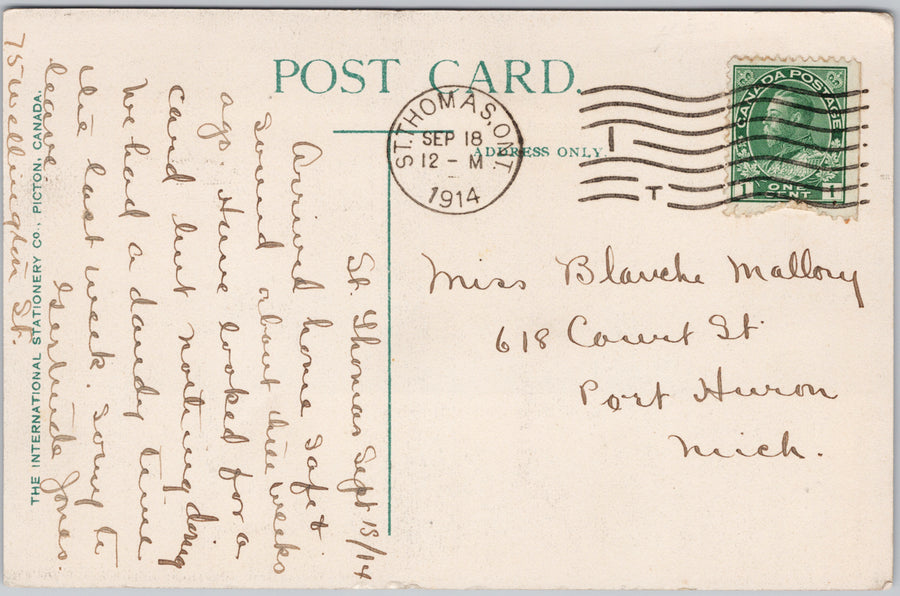 POST CARD.
ADDRESS ONLY.
ST. THOMAS, ONT.
SEP 18
12 - M
1914
I
T
CANADA POSTAGE
1 ONE CENT 1
Miss Blanche Mallory
618 Court St
Port Huron
Mich.
St. Thomas Sept 18/14
Arrived home safe &
sound about three weeks
ago. Have looked for a
card but nothing doing
We had a dandy time
the last week. Sorry to
leave. Gertrude Jones.
75 Wellington St.
THE INTERNATIONAL STATIONERY CO., PICTON, CANADA.